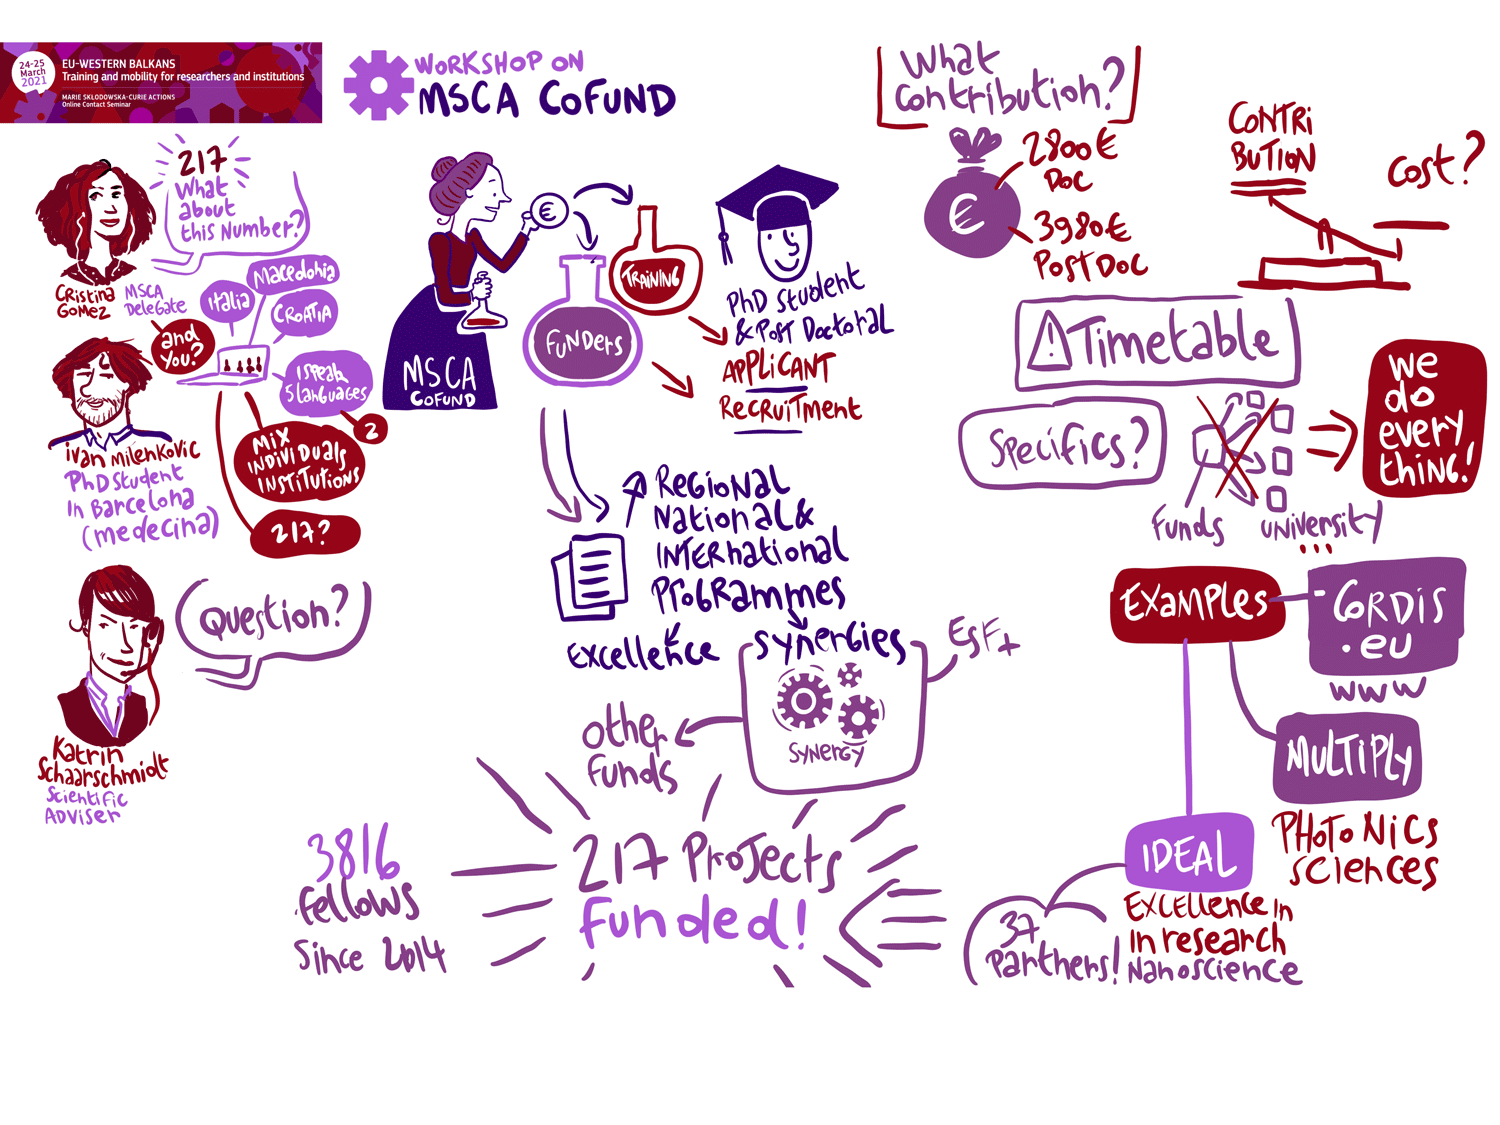 24-25
March
2021
EU-WESTERN BALKANS
Training and mobility for researchers and institutions
MARIE SKŁODOWSKA-CURIE ACTIONS
Online Contact Seminar
WORKSHOP ON
MSCA COFUND
217
What
about
this Number?
CRistina
GOMEZ
MSCA
DELEGATE
and
you?
italia
Macedonia
CROATIA
I speak
5 languages
2
MIX
INDIVIDUALS
INSTITUTIONS
217?
ivan Milenkovic
PhD Student
In Barcelona
(medecina)
Question?
Katrin
Schaarschmidt
Scientific
ADViser
€
TRAINING
FUNDERS
MSCA
COFUND
PhD Student
& Post Doctoral
APPLICANT
RECRUITMENT
REGIONAL
National &
INTERnational
PROGRAMMES
EXCELLENCE
Synergies
ESF+
SYNERGY
other
funds
3816
fellows
Since 2014
217 Projects
Funded!
What
contribution?
€
2800€
DOC
3980€
POSTDOC
CONTRI
BUTION
Cost?
Timetable
Specifics?
Funds
university
...
we
do
every
thing!
EXAMPLES
-CORDIS
.eu
www
MULTIPLY
PHOTONICS
SCIENCES
IDEAL
EXCELLENCE IN
IN research
Nanoscience
37
Partners!